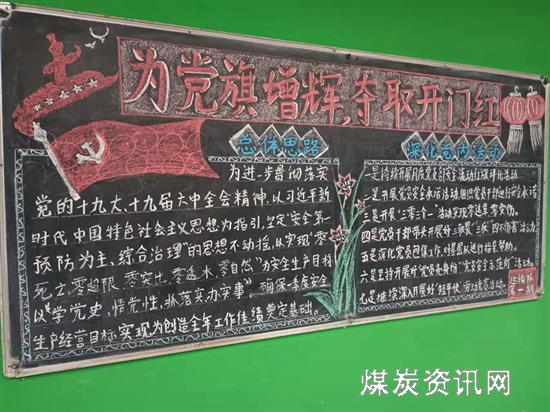 为党旗增辉,夺取开门红
总体思路
为进一步贯彻落实
党的十九大、十九届六中全会精神,以习近平新
时代中国特色社会主义思想为指引,坚定“安全第一
预防为主、综合治理”的思想不动摇,以实现“零
死亡、零超限、零突出、零透水、零自然”为安全生产目标
以“学党史,悟党性,抓落实办实事”确保一季度安全
生产经营目标实现为创造全年工作佳绩奠定基础。
深化党内活动
一是持续开展月度党支部
二是开展党员安全承诺活动,组织党员干部进行安全承诺
三是开展“三零三个一”活动实现零违章零事故。
四是党员干部带头开展
五是深化党员包保工作,
六是坚持开展好“党员先身份”党员安全示范岗”活动
七是继续深入开展好
第一期
煤炭资讯网